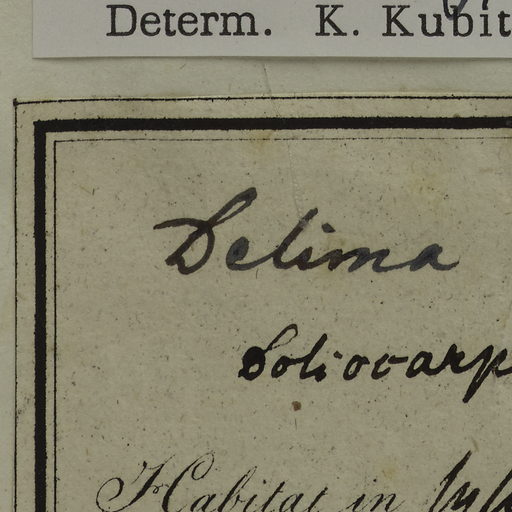 Determ. K. Kubit
Delima
Doliocarp
Habitat in